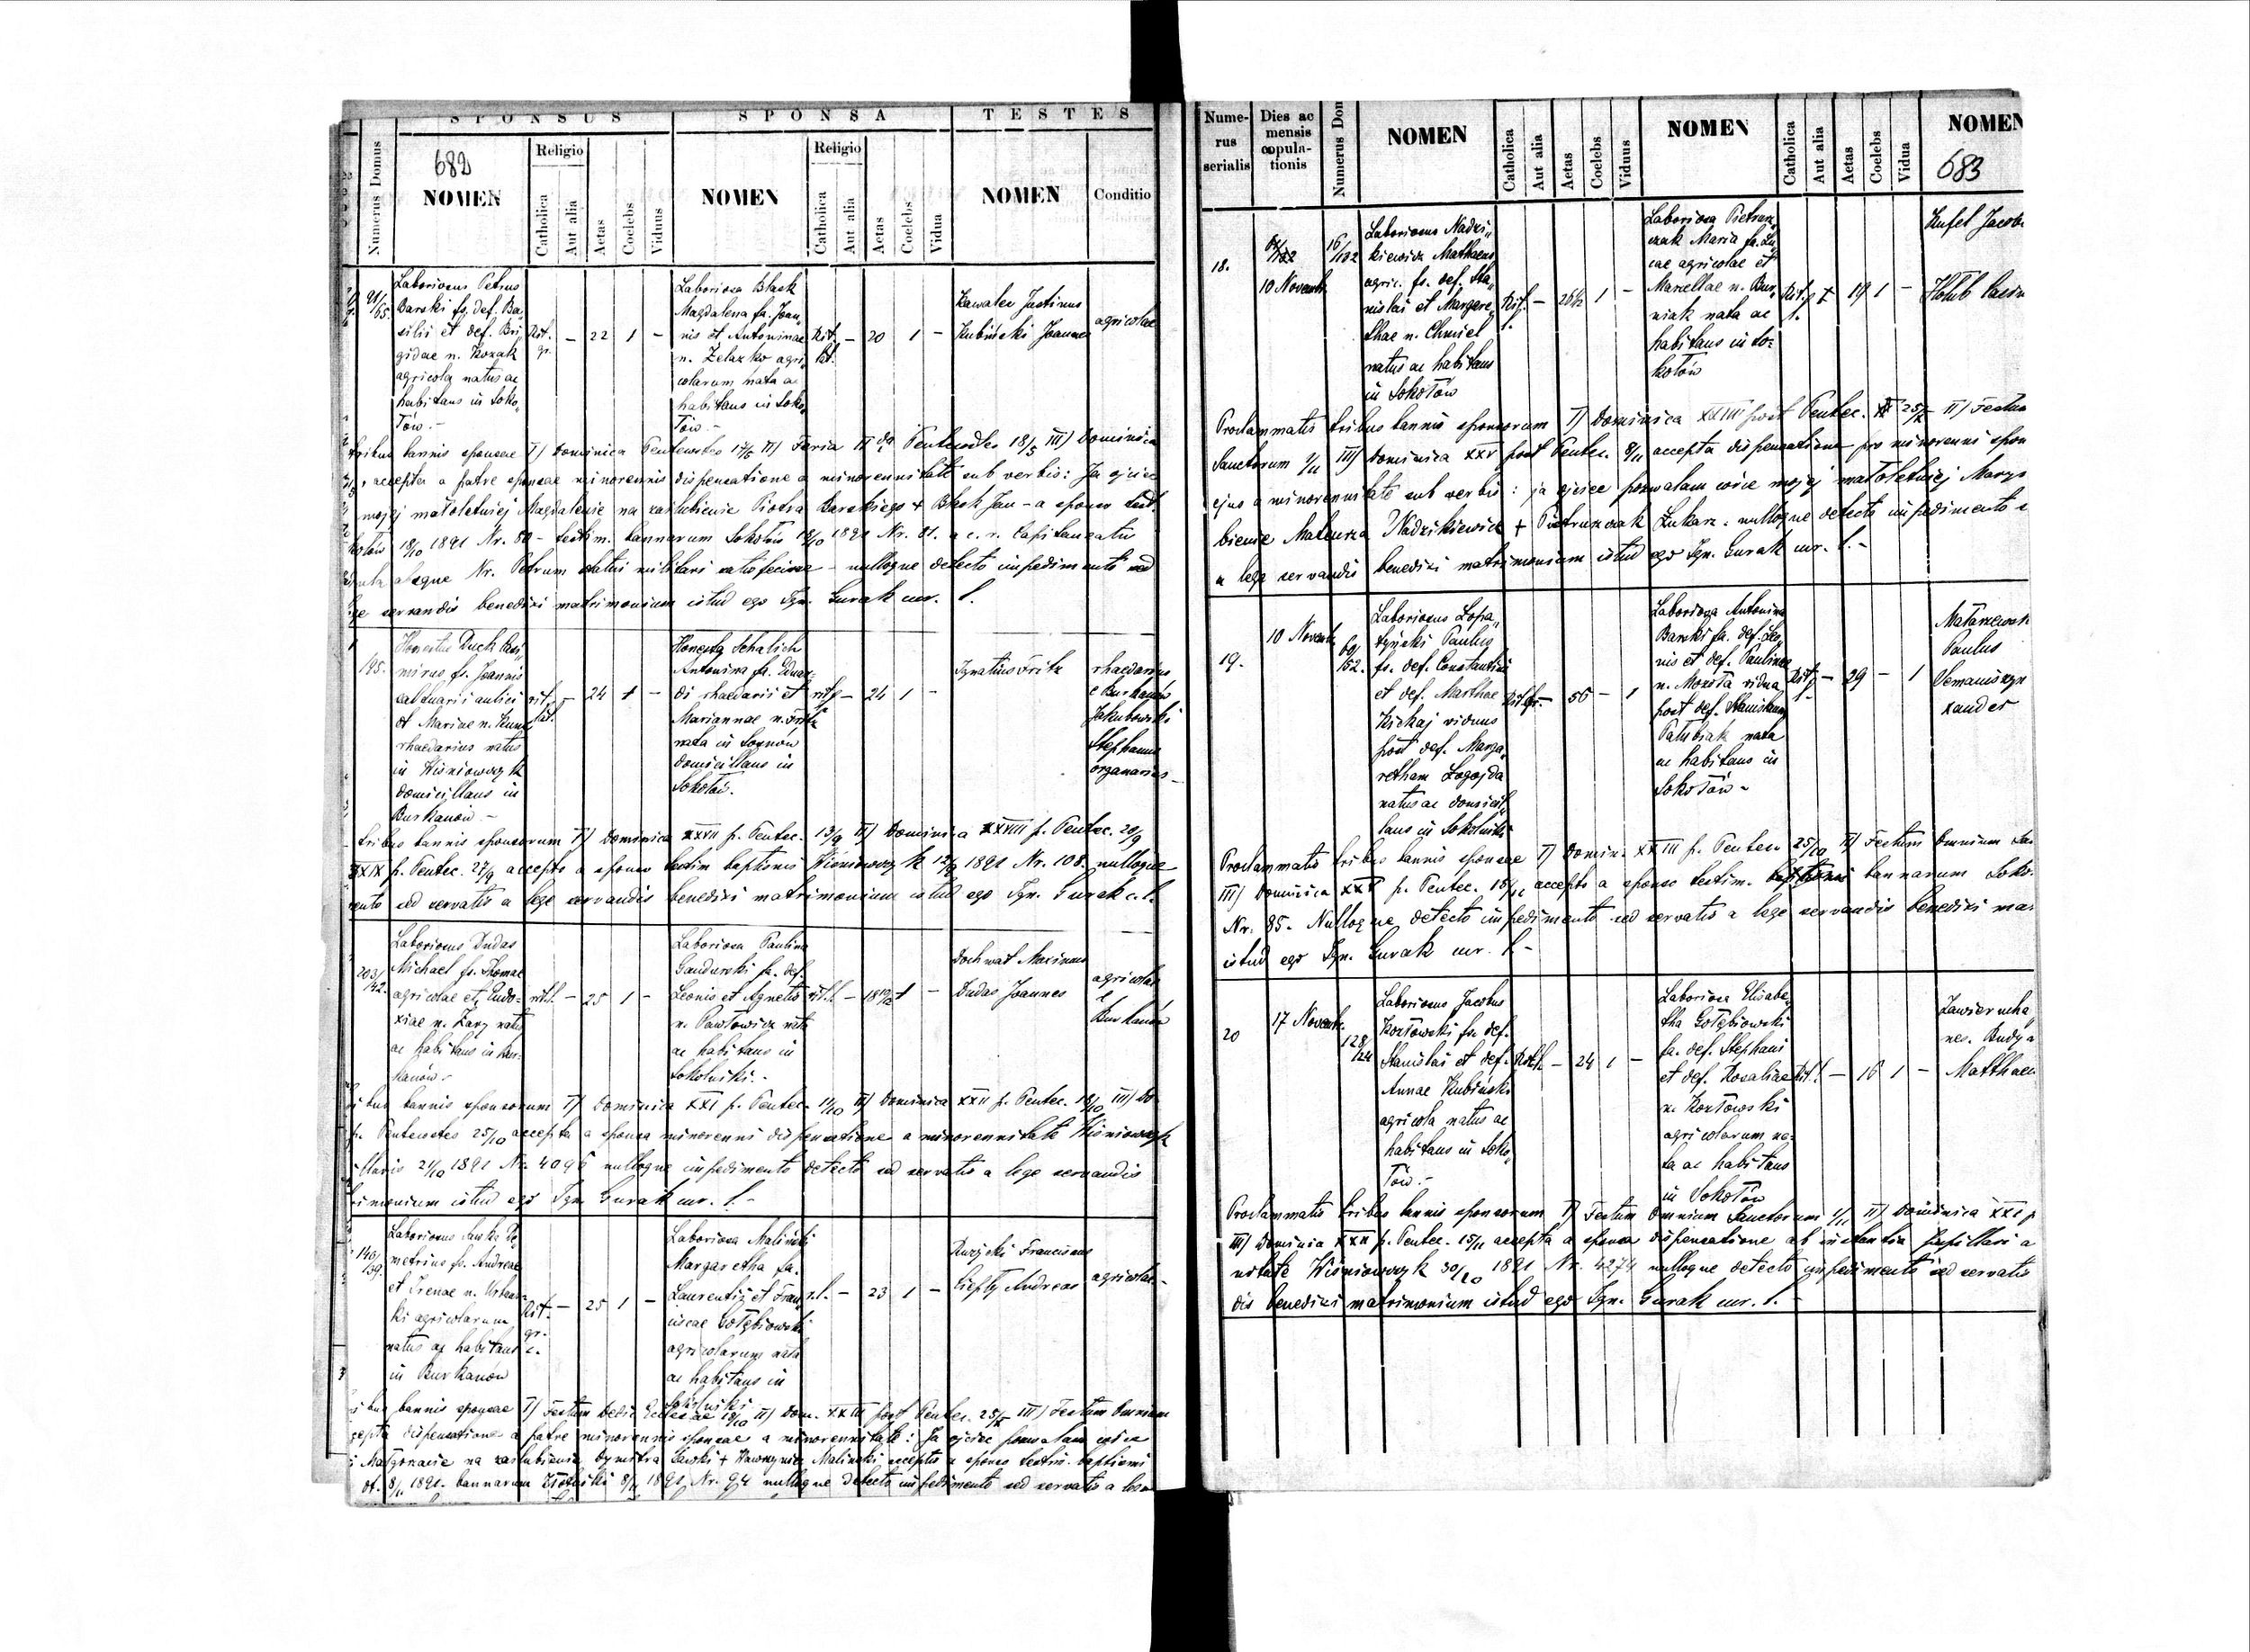 SPONSUS SPONSA TESTES
Numerus Domus
682
NOMEN
Religio
Catholica
Aut alia
Aetas
Coelebs
Viduus
NOMEN
Religio
Catholica
Aut alia
Aetas
Coelebs
Vidua
NOMEN
Conditio
Laboriosus Petrus
Barski fs. def. Ba„
silii et def. Bri„
gidae n. Kozak
agricola natus ac
habitans in Soko„
łów.-
Rit. gr. - 22 1 -
Laboriosa Błach
Magdalena fa. Joan„
nis et Antoninae
n. Żelazko agri„
colarum nata ac
habitans in Soko„
łów.-
Rit. lat. - 20 1 -
Kawalec Justinus
Kubiński Joannes
agricolae
tribus bannis sponsae I) Dominica Pentecostes 17/5 II) Feria II da Pentecostes 18/5 III) Dominica
accepta a patre sponsae minorennis dispensatione a minorennitate sub verbis: Ja ojciec
mojej małoletniej Magdalenie na zaślubienie Piotra Barskiego + Błach Jan - a sponso test.
18/10 1891 Nr. 80 - testim. bannarum Sokołów 18/10 1891 Nr. 81. a c. r. Capitaneatu
absque Nr. Petrum statui militari satisfecisse - nulloque detecto impedimento sed
lege servandis benedixi matrimonium istud ego Ign. Gurak cur. l.
195.
Honestus Duch Casi„
mirus fs. Joannis
aulici
et Mariae n.
rhaedarius natus
in Wiśniowczyk
domicillans in
Burkanów -
rit. lat. - 24 1 -
Honesta Schalich
Antonina fa. Eduar„
di rhaedarii et
Mariannae n. Fritz
nata in
domicillans in
Sokołów.
24 1 -
Ignatius Fritz
rhaedarius
e Burkanów
Jakubowski
Stephanus
organarius -
tribus bannis sponsorum I) Dominica XXVII p. Pentec. 13/9 II) Dominica XXVIII p. Pentec. 20/9
XXIX p. Pentec. 27/9 accepto a sponso testim baptismi Wiśniowczyk 12/9 1891 Nr. 108. nulloque
sed servatis a lege servandis benedixi matrimonium istud ego Ign. Gurak c. l.
203/142.
Laboriosus Dudas
Michael fs. Thomae
agricolae et Eudo„
xiae n. Zary natus
ac habitans in Bur„
kanów.-
rit. l. - 25 1 -
Laboriosa Paulina
Gandurski fa. def.
Leonis et Agnetis
n. Pawłowicz nata
ac habitans in
Sokolniki.-
rit. l. - 18 10/12 1 -
Dochwat Maximus
Dudas Joannes
agricolae
e
Burkanów
tribus bannis sponsorum I) Dominica XXI p. Pentec. 11/10 II) Dominica XXII p. Pentec. 18/10 III) Do-
p. Pentecostes 25/10 accepta a sponsa minorenni dispensatione a minorennitate Wiśniowczyk
21/10 1891 Nr. 4096 nulloque impedimento detecto sed servatis a lege servandis
istud ego Ign. Gurak cur. l.-
140/39.
Laboriosus Sawka De„
metrius fs. Andreae
et Irenae n.
ki agricolarum
natus ac habitans
in Burkanów
Rit. gr. c. - 25 1 -
Laboriosa Maliński
Margaretha fa.
Laurentii et Fran„
ciscae Gołębiowski
agricolarum nata
ac habitans in
Sokolniki
r. l. - 23 1 -
Ruzycki Franciscus
Ciepły Andreas
agricolae -
bannis sponsae I) Festum Dedic. Ecclesiae 18/10 II) Dom. XXIII post Pentec. 25/X III) Festum Omnium
dispensatione a patre minorennis sponsae a minorennitate: Ja ojciec pozwalam córce
Małgorzacie na zaślubienie Dymitra Sawki + Wawrzyniec Maliński accepto a sponso testim. baptismi
8/11 1891. bannarum 8/11 1891 Nr. 94 nulloque detecto impedimento sed servatis a lege
Numerus serialis
Dies ac mensis copulationis
Numerus Dom
NOMEN
Catholica
Aut alia
Aetas
Coelebs
Viduus
NOMEN
Catholica
Aut alia
Aetas
Coelebs
Vidua
NOMEN
683
18.
10 Novemb.
16/102
Laboriosus Nadzi„
kiewicz Mathaeus
agric. fs. def. Sta„
nislai et Margare„
thae n. Chmiel
natus ac habitans
in Sokołów
Rit. l. - 1 -
Laboriosa Pietrusz„
czak Maria fa. Lu„
cae agricolae et
Marcellae n. Bur„
niak nata ac
habitans in So„
kołów
Rit. l. 19 1 -
Kufel Jacobu
Hołub
Proclammatis tribus bannis sponsorum I) Dominica XXIII post Pentec. 25/X II) Festum
Sanctorum 1/11 III) Dominica XXV post Pentec. 8/11 accepta dispensatione pro minorenni spon
ejus a minorennitate sub verbis: ja ojciec pozwalam córce mojej małoletniej Marys
bienie Mateusza Nadzikiewicz + Pietruszczak Łukasz - nulloque detecto impedimento s
a lege servandis benedixi matrimonium istud ego Ign. Gurak cur. l. -
19.
10 Novemb.
60/152.
Laboriosus Łopa„
tyński Paulus
fs. def. Constantini
et def. Marthae
Kickaj viduus
post def. Marga„
retham Łogojda
natus ac domicil„
lans in Sokolniki
Rit. gr. - 56 - 1
Laboriosa Antonina
Barski fa. def. Leo„
nis et def. Paulinae
n. Mokota vidua
post def. Stanislaum
Palubiak nata
ac habitans in
Sokołów -
Rit. l. - 29 - 1
Paulus
xander
Proclammatis tribus bannis sponsae I) Domin. XXIII p. Pentec 25/10 II) Festum Omnium Sa
III) Dominica XXV p. Pentec. 15/11 accepto a sponso testim. bannarum Soko
Nr. 85. Nulloque detecto impedimento sed servatis a lege servandis benedixi ma
istud ego Ign. Gurak cur. l. -
20
17 Novemb.
128/24
Laboriosus Jacobus
Kozłowski fs. def.
Stanislai et def.
Annae Kubiński
agricola natus ac
habitans in Soko„
łów.-
Rit. l. - 24 1 -
Laboriosa Elisabe„
tha Gołębiowski
fa. def. Stephani
et def. Rosaliae
n. Kozłowski
agricolarum na„
ta ac habitans
in Sokołów
Rit. l. - 16 1 -
Zawierucha
nes.
Matthae
Proclammatis tribus bannis sponsorum I) Festum Omnium Sanctorum 1/11 II) Dominica XXI p
III) Dominica XXII p. Pentec. 15/11 accepta a sponsa dispensatione ab instantia pupillari a
nitate Wiśniowczyk 30/10 1891 Nr. 4274 nulloque detecto impedimento sed servatis
dis benedixi matrimonium istud ego Ign. Gurak cur. l. -